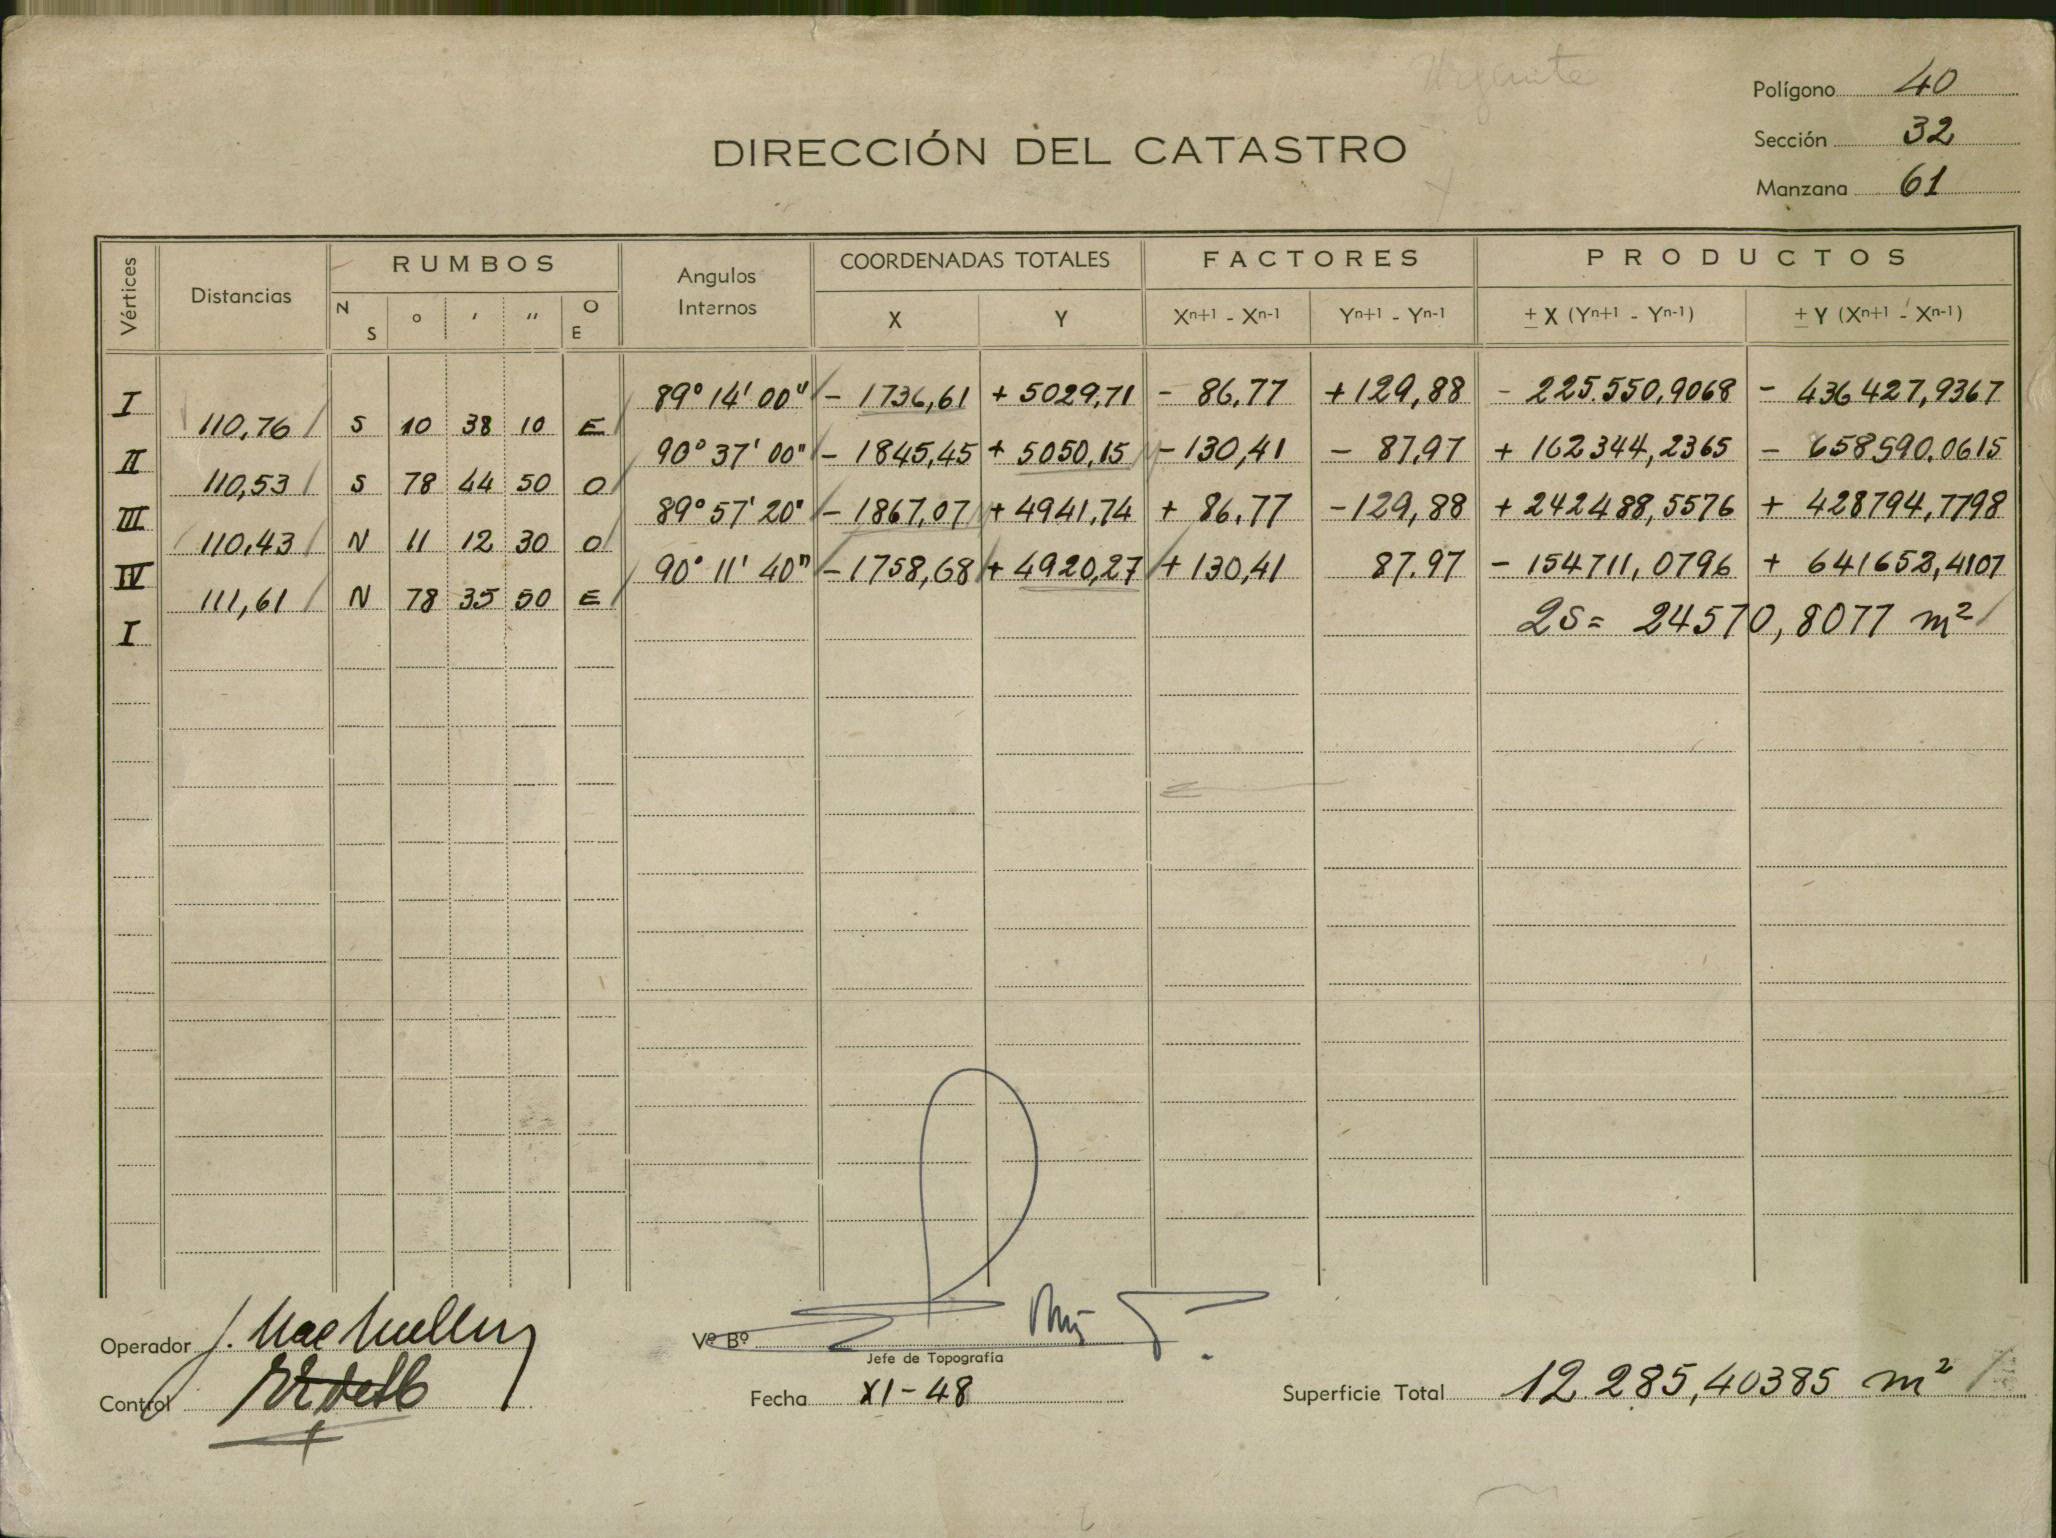 Urgente
Polígono 40
DIRECCIÓN DEL CATASTRO
Sección 32
Manzana 61
Vértices Distancias RUMBOS Angulos Internos COORDENADAS TOTALES FACTORES PRODUCTOS
N S ° ' " O E X Y Xn+1 - Xn-1 Yn+1 - Yn-1 ± X (Yn+1 - Yn-1) ± Y (Xn+1 - Xn-1)
I 89° 14' 00" - 1736,61 + 5029,71 - 86,77 + 129,88 - 225.550,9068 - 436427,9367
110,76 S 10 38 10 E
II 90° 37' 00" - 1845,45 + 5050,15 - 130,41 - 87,97 + 162344,2365 - 658590.0615
110,53 S 78 44 50 O
III 89° 57' 20" - 1867,07 + 4941,74 + 86,77 - 129,88 + 242488,5576 + 428794,7798
110,43 N 11 12 30 O
IV 90° 11' 40" - 1758,68 + 4920,27 + 130,41 87.97 - 154711,0796 + 641652,4107
111,61 N 78 35 50 E
I 2S = 24570,8077 m²
Operador J. Mac
Vº Bº
Jefe de Topografía
Control
Fecha XI-48
Superficie Total 12.285,40385 m²